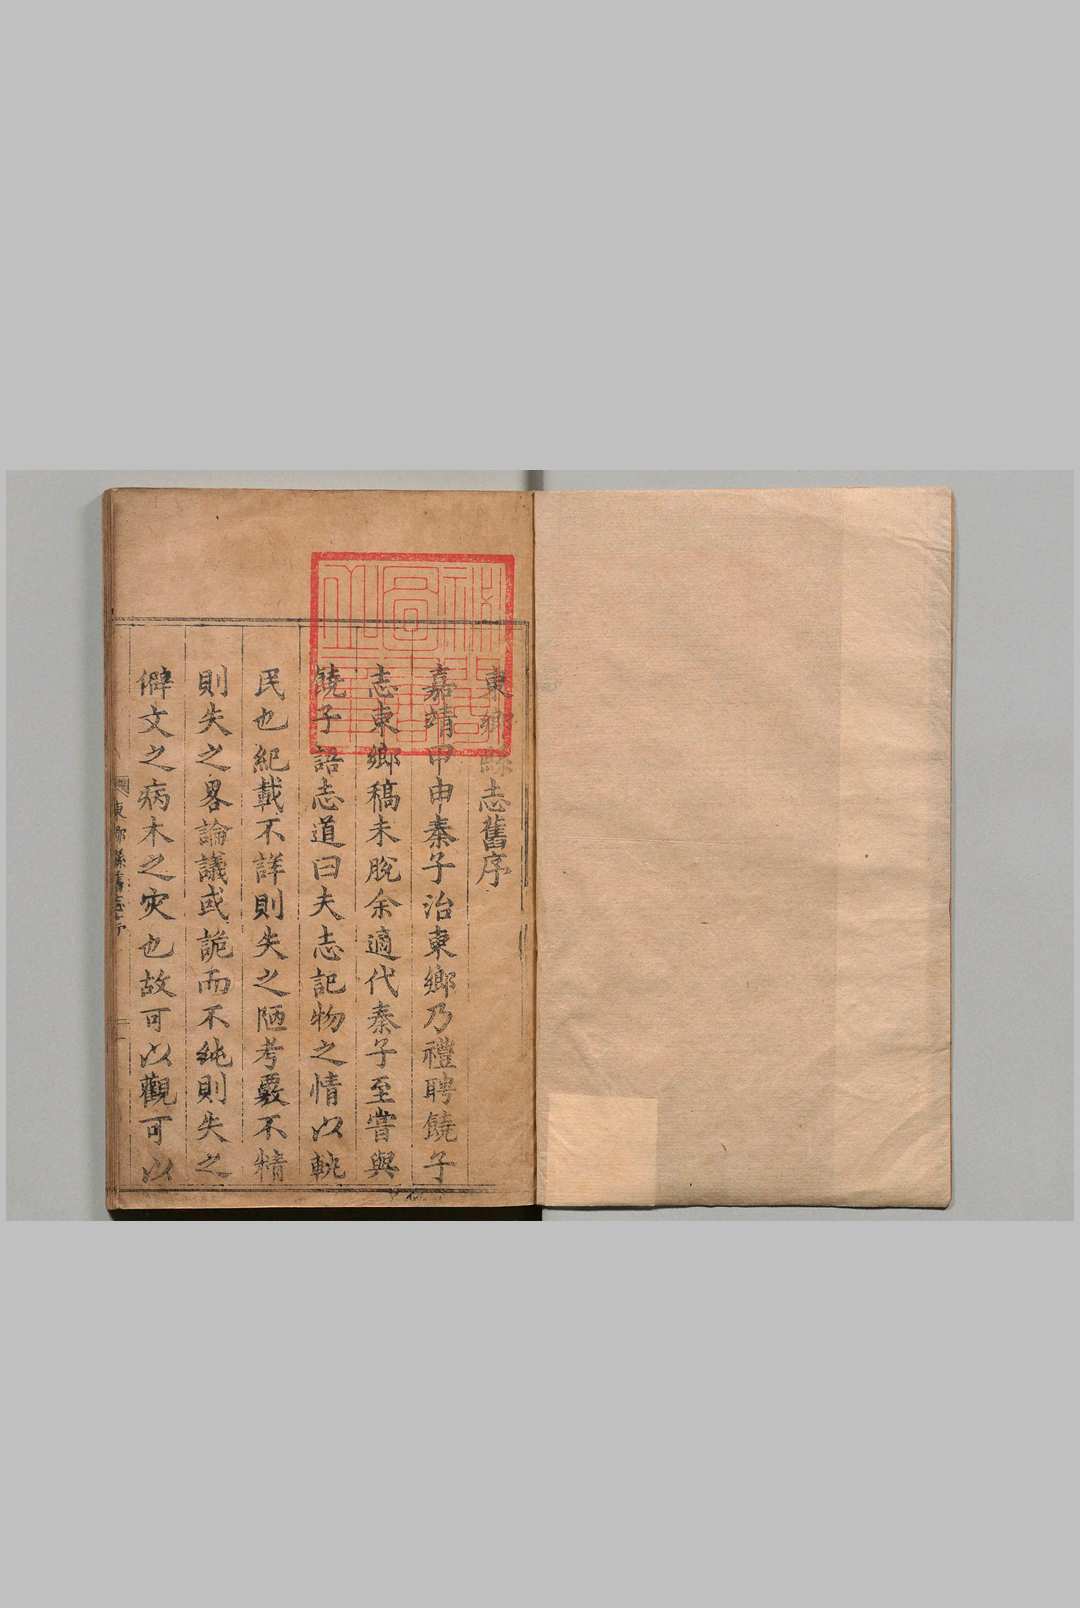 東鄉縣志舊序
嘉靖甲申秦子治東鄉乃禮聘饒子
志東鄉稿未脫余適代秦子至嘗與
饒子語志道曰夫志記物之情以軌
民也紀載不詳則失之陋考覈不精
則失之畧論議或詭而不純則失之
僻文之病木之灾也故可以觀可以
東鄉縣舊志序